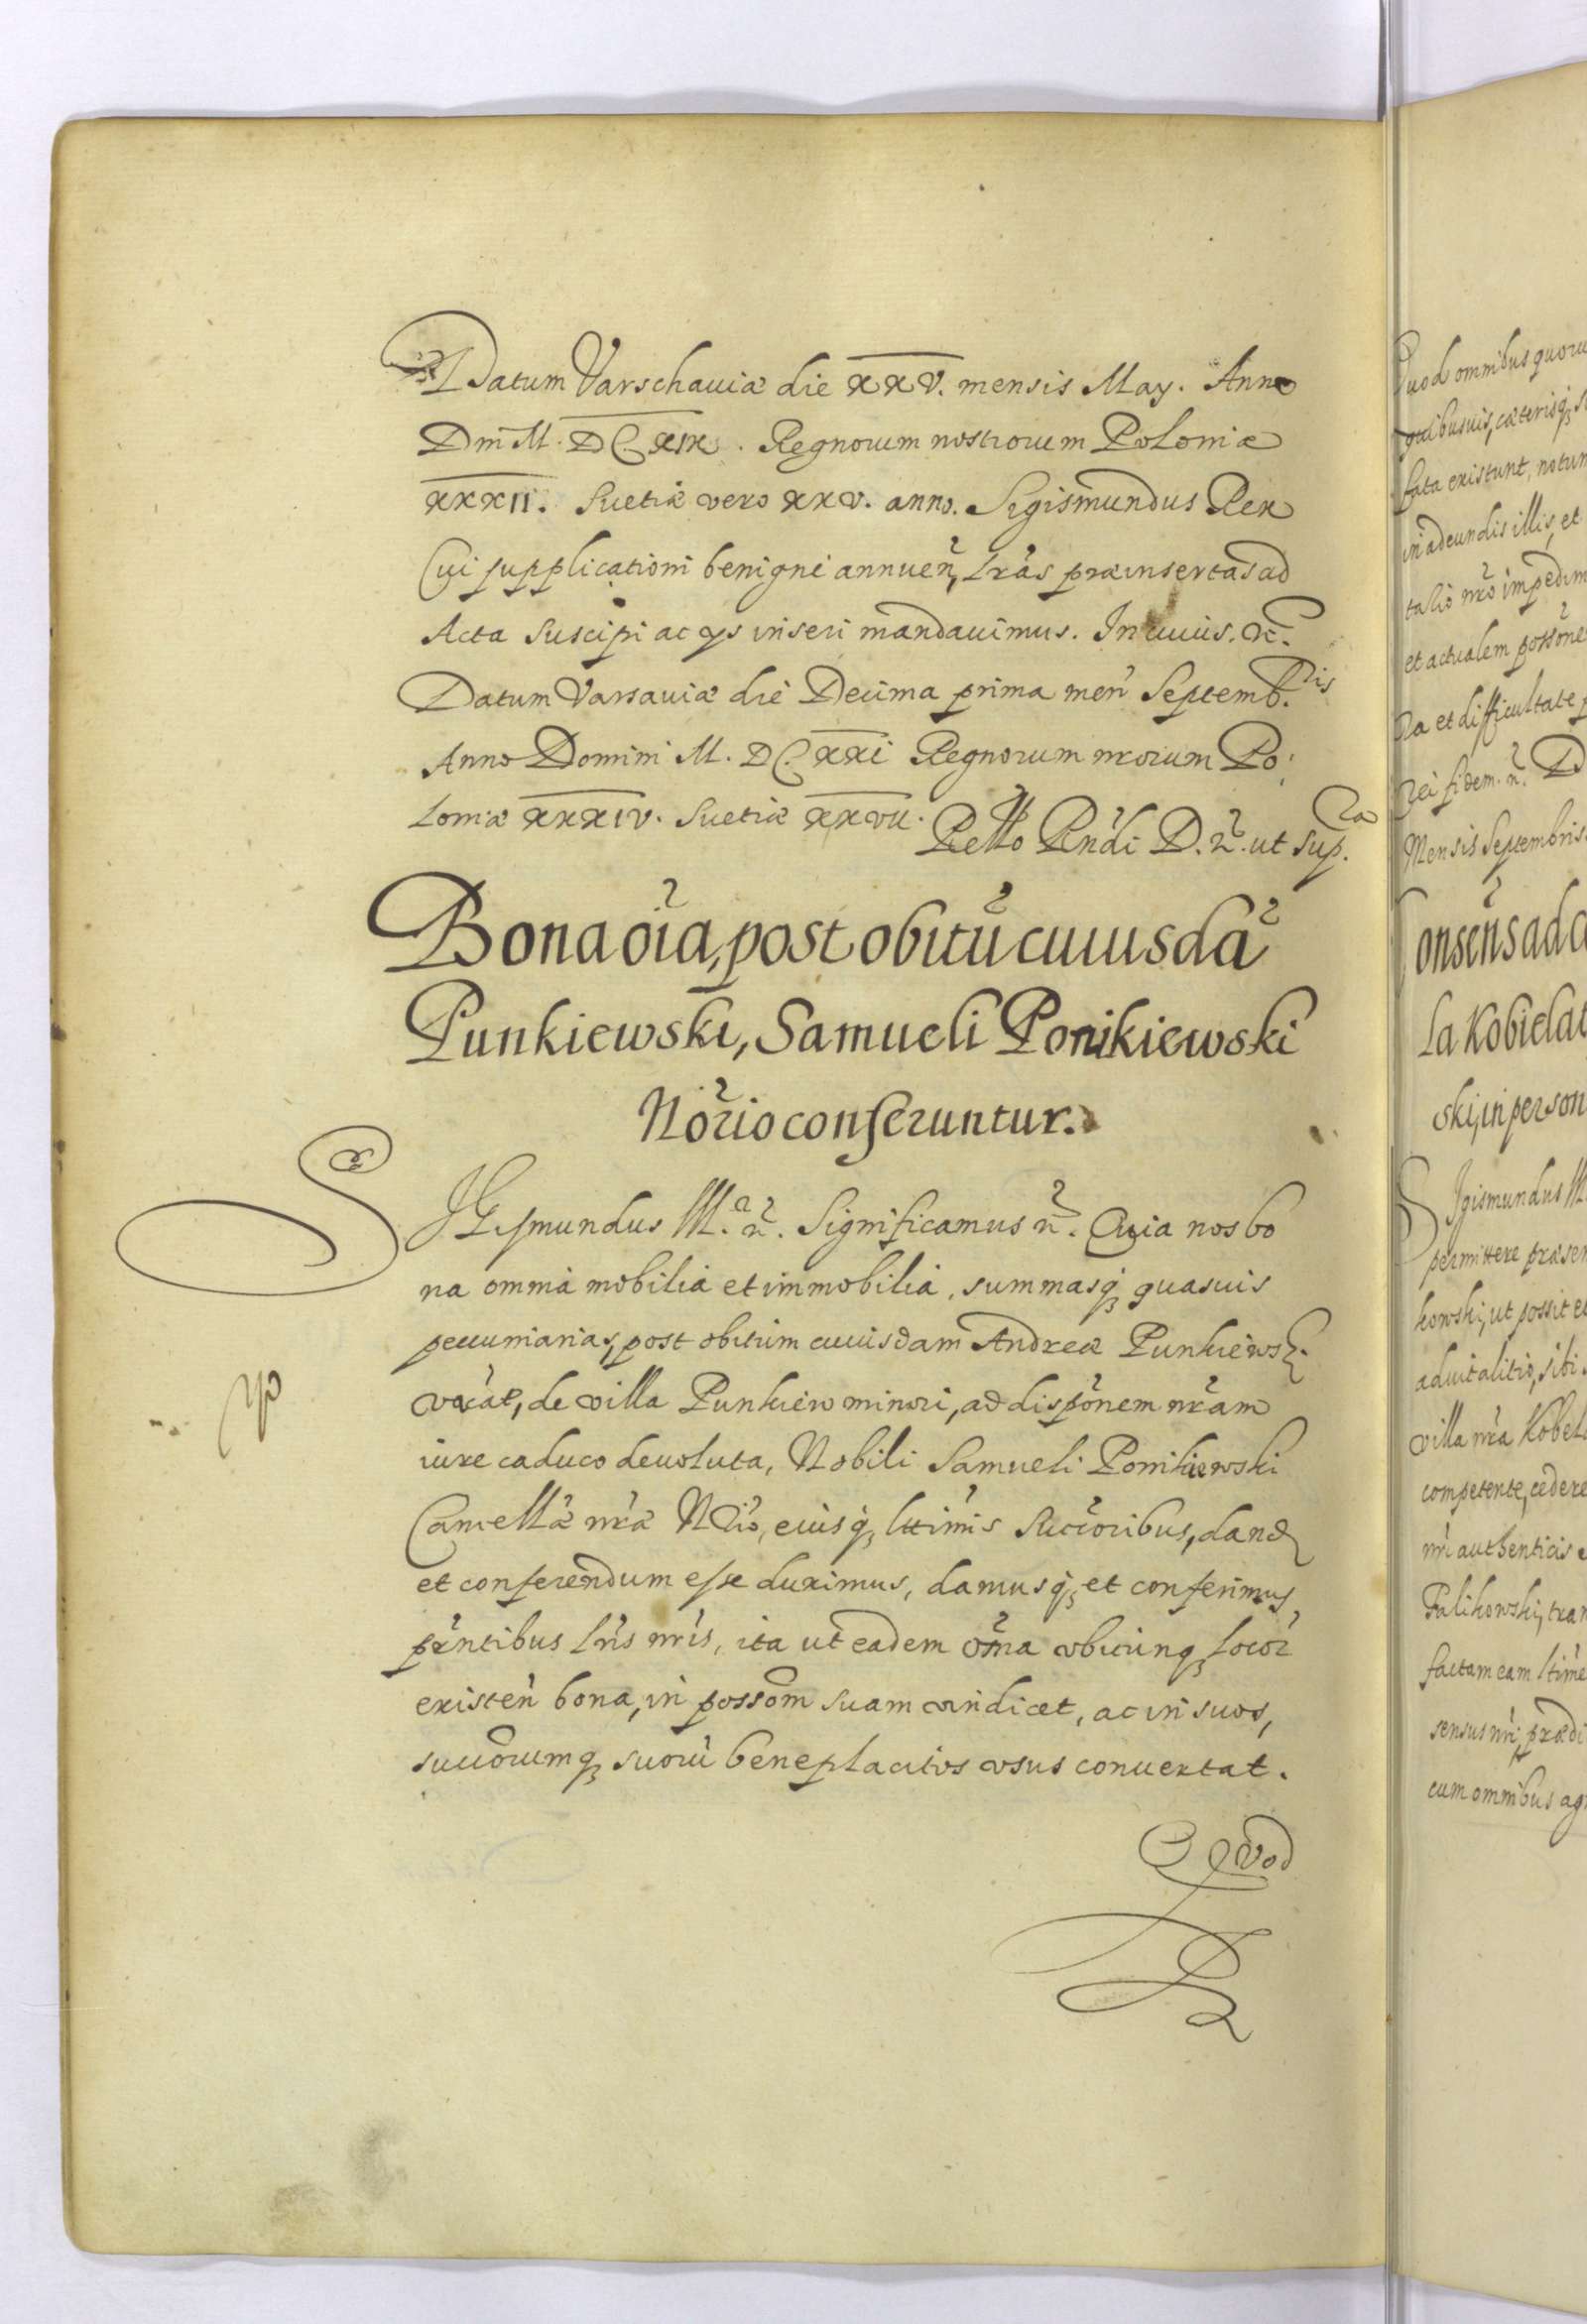 Datum Varschauiæ die XXV. mensis May. Anno
Dni M. DC. XIX. Regnorum nostrorum Poloniæ
XXXII. Suetiæ vero XXV. anno. Sigismundus Rex
Cui supplicationi benigne annuen̄, lr̄as præinsertas ad
Acta suscipi ac ys inseri mandauimus. In cuius. &c.
Datum Varsauiæ die Decima prima men̄ Septemb.ris
Anno Domini M. DC. XXI Regnorum nr̄orum Po:
loniæ XXXIV. Suetiæ XXVII.
Rell̄o Rn̄di D. n̄. ut sup.ra
Bona oīa, post obitū cuiusdā
Punkiewski, Samueli Ponikiewski
Nōrio conferuntur.
SIGismundus III. n̄. Significamus n̄. Quia nos bo
na omnia mobilia et immobilia, summasq; quasuis
pecuniarias, post obitum cuiusdam Andreæ Punkiews.
vocat, de villa Punkiew minori, ad dispōnem nr̄am
iure caduco deuoluta, Nobili Samueli Ponikiewski
Cancellā nr̄æ N̄rio, eiusq; lttimis succōribus, dand
et conferendum esse duximus, damusq; et conferimus
pr̄ntibus lr̄is nr̄is, ita ut eadem om̄a vbicunq; locor̄
existen̄ bona, in possom suam vindicet, ac in suos,
succōrumq; suorū beneplacitos vsus conuertat.
Quod
Quod omnibus quoru
quibusuis, cæterisq; s
fata existunt, notum
in adeundis illis, et
talio nr̄o impedim
et actualem possōne
ra et difficultate p
rei fidem. n̄. D
Mensis Septembris.
onsēns ad c
la Kobiela
ski, in person
Sigismundus III
permittere præsen
kowski, ut possit e
aduitalitio, sibi
villa nr̄a Kobel
competente, cedere
nr̄i authenticis
Falikowski, tran
factam eam ltime
sensus nr̄i, prædi
cum omnibus agr